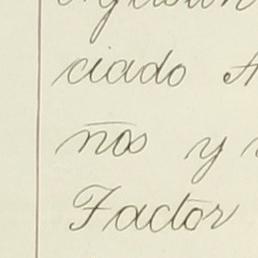 ciado
ños y
Factor